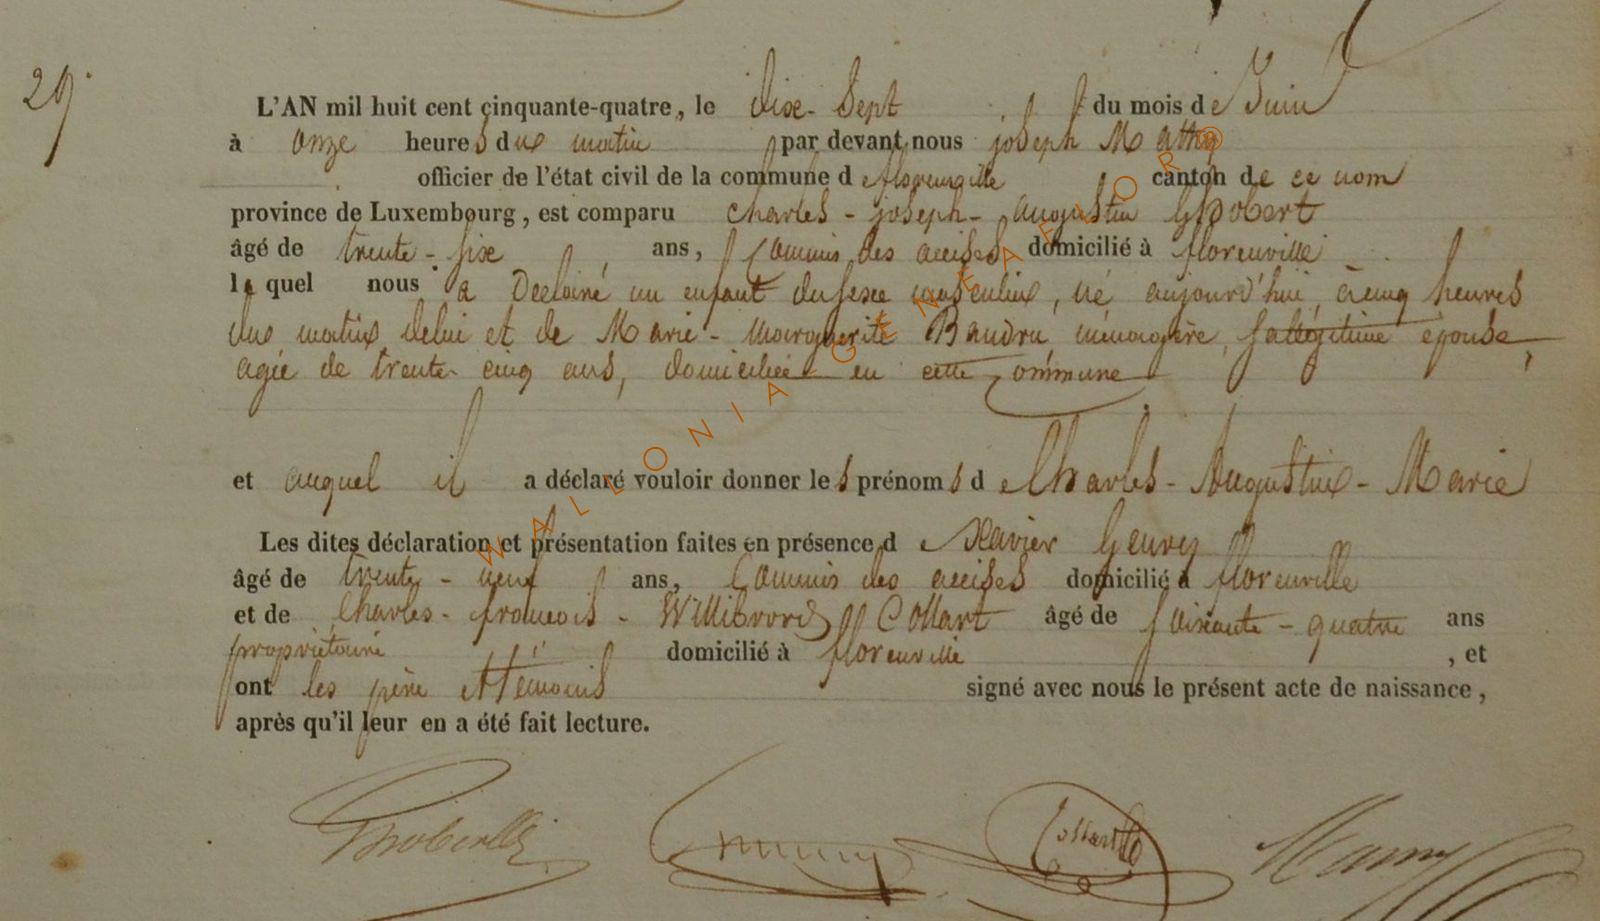 29.
L'AN mil huit cent cinquante-quatre, le dixe-Sept du mois de Juin
à onze heures du matin par devant nous joseph Mathy
officier de l'état civil de la commune de florenville canton de ce nom
province de Luxembourg, est comparu Charles-joseph-augustin
âgé de trente-sixe ans, Commis des accises domicilié à florenville
lequel nous a Déclaré un enfant du sexe masculin, né aujourd'hui, à cinq heures
du matin, de lui et de Marie-Marguerite Baudru, ménagère, sa légitime épouse,
agée de trente-cinq ans, domiciliée en cette commune
et auquel il a déclaré vouloir donner les prénoms de Charles-Augustin-Marie
Les dites déclaration et présentation faites en présence de Xavier
âgé de trente-neuf ans, Commis des accises domicilié à florenville
et de Charles-françois-Willibrord Collart âgé de soixante-quatre ans
propriétaire domicilié à florenville, et
ont les père et témoins signé avec nous le présent acte de naissance,
après qu'il leur en a été fait lecture.
Collart
WALLONIA GENEAFLOR®